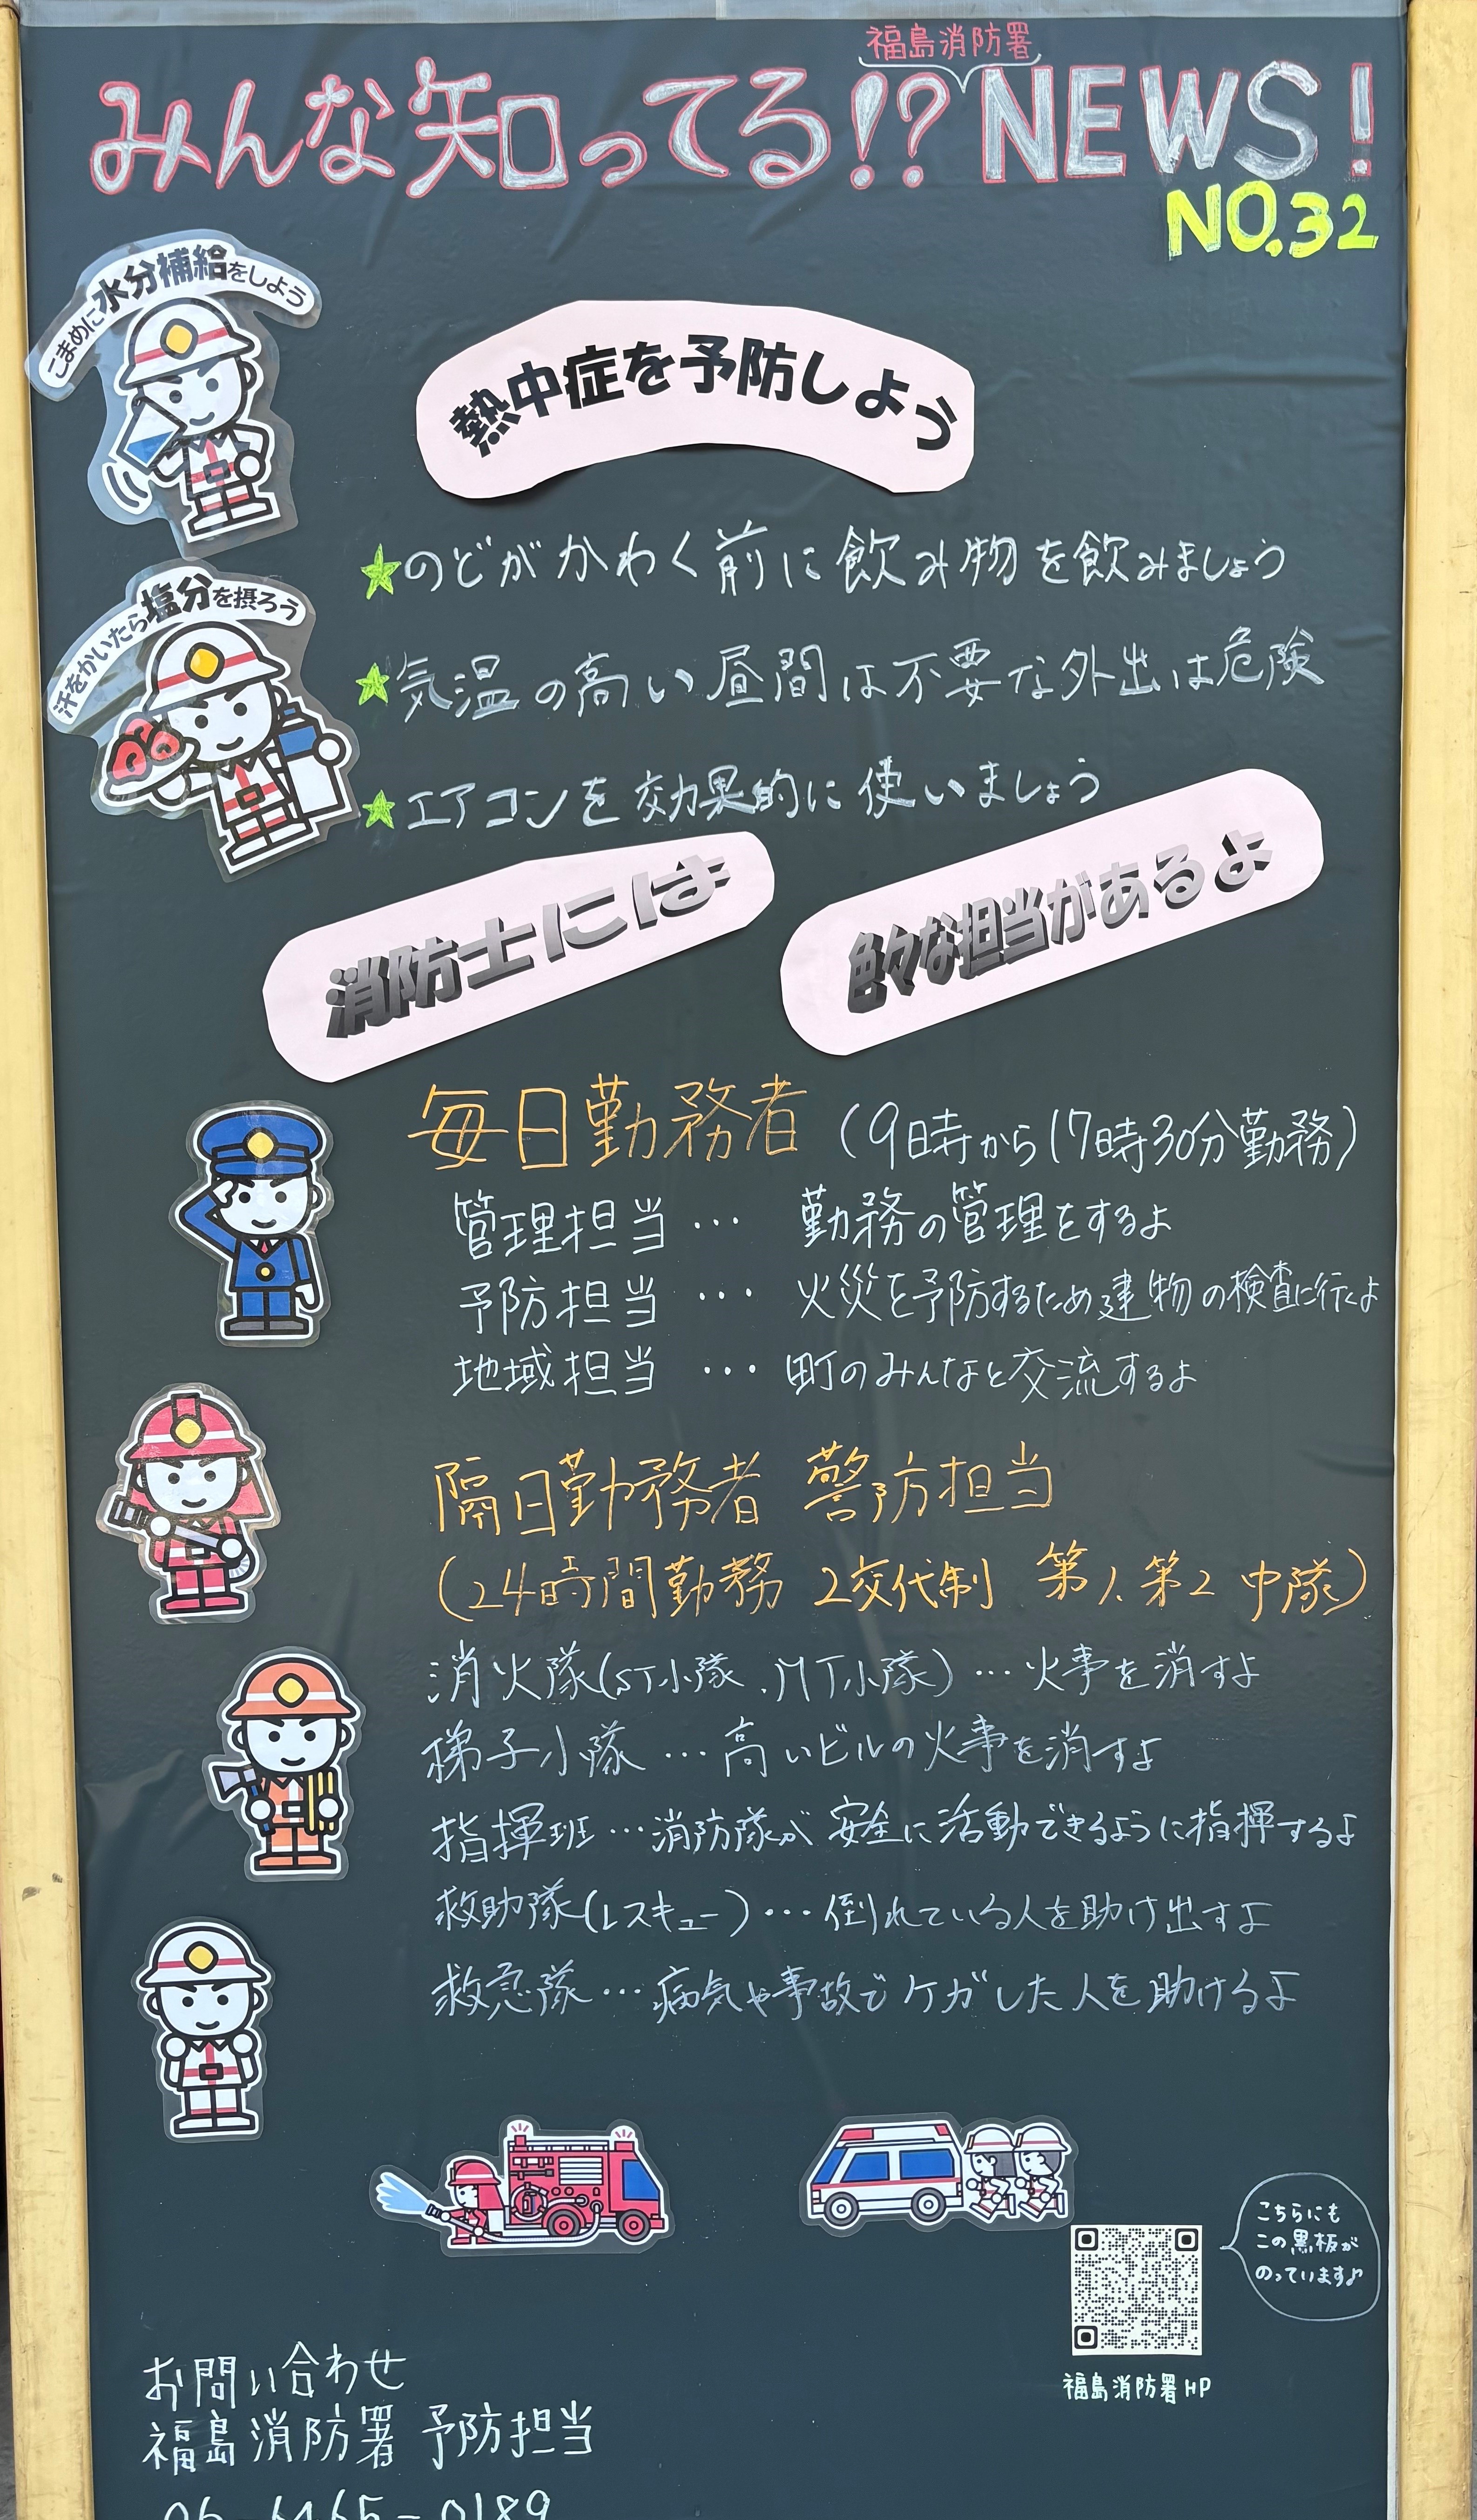 福島消防署
みんな知ってる!?NEWS!
NO.32
こまめに水分補給をしよう
熱中症を予防しよう
★のどがかわく前に飲み物を飲みましょう
汗をかいたら塩分を摂ろう
★気温の高い昼間は不要な外出は危険
★エアコンを効果的に使いましょう
消防士には
色々な担当があるよ
毎日勤務者（9時から17時30分勤務）
管理担当… 勤務の管理をするよ
予防担当 … 火災を予防するため建物の検査に行くよ
地域担当 … 町のみんなと交流するよ
隔日勤務者 警防担当
（24時間勤務 2交代制 第1、第2中隊）
消火隊（ST小隊、MT小隊）…火事を消すよ
梯子小隊…高いビルの火事を消すよ
指揮班…消防隊が安全に活動できるように指揮するよ
救助隊（レスキュー）…倒れている人を助け出すよ
救急隊…病気や事故でケガした人を助けるよ
こちらにも
この黒板が
のっています♪
福島消防署HP
お問い合わせ
福島消防署 予防担当
06-6465-0189